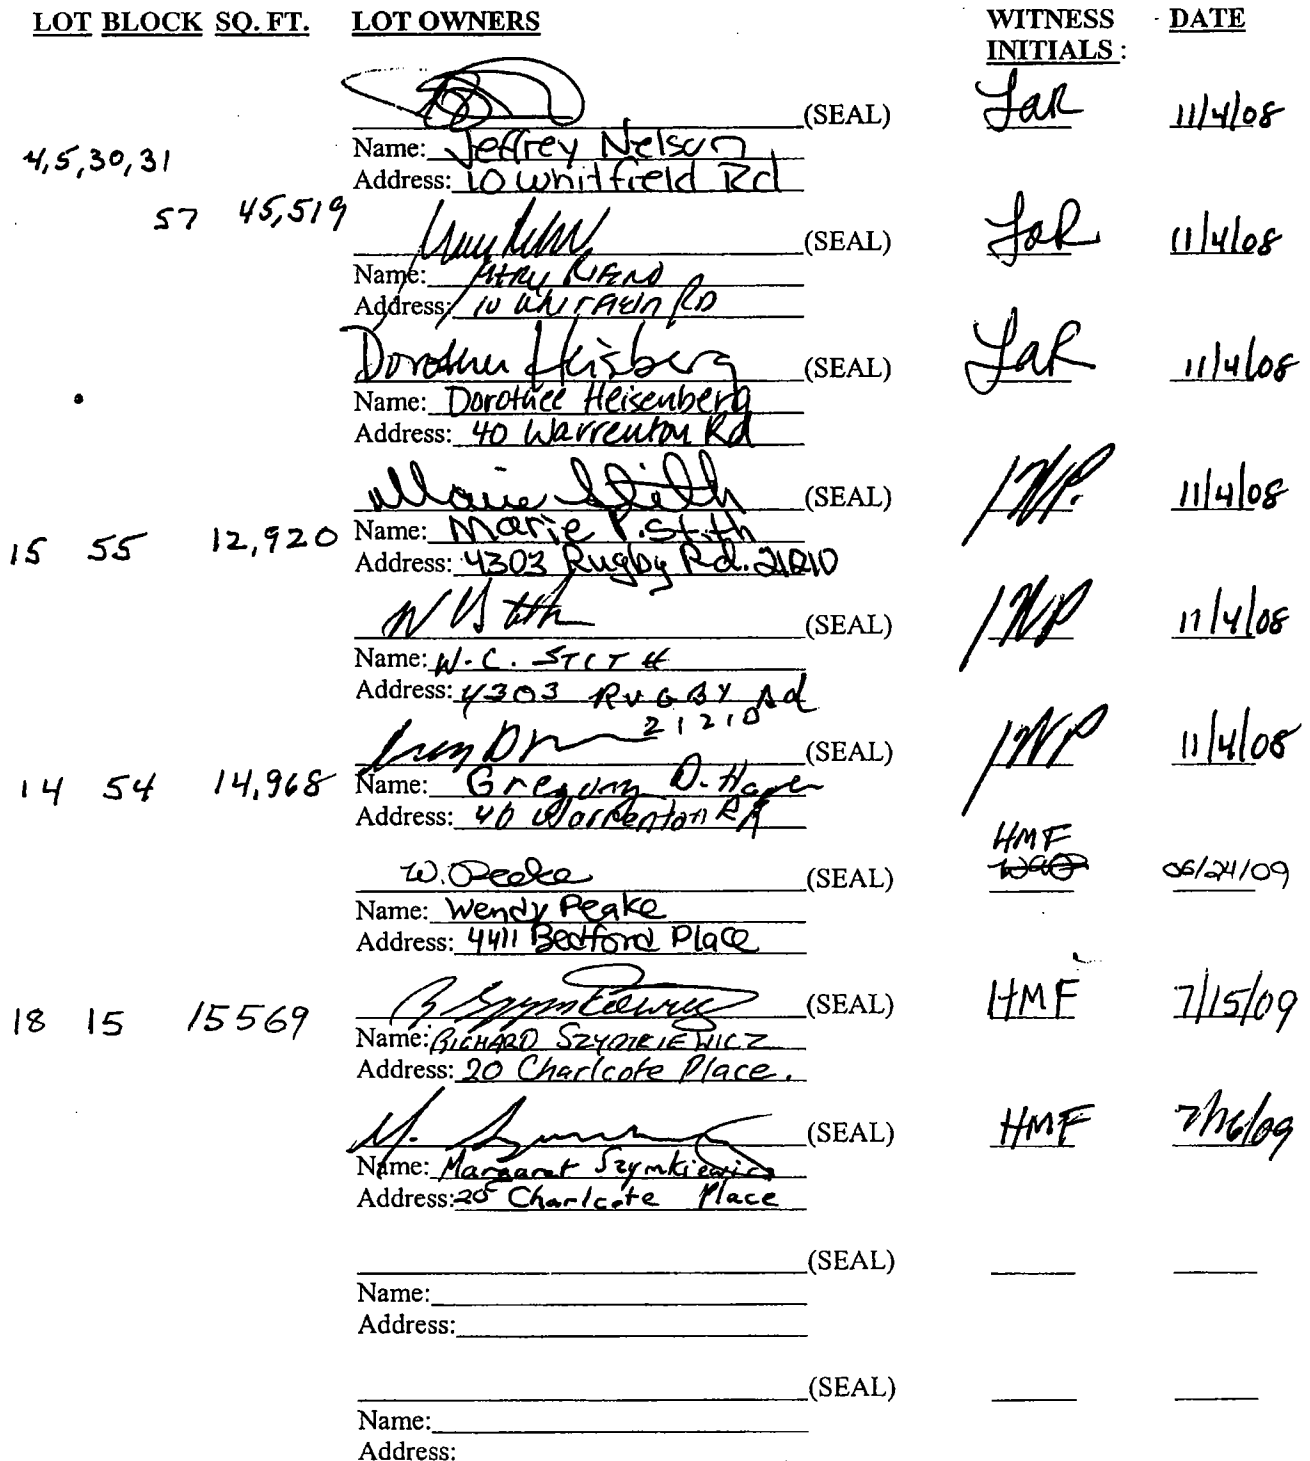 LOT BLOCK SQ. FT. LOT OWNERS WITNESS INITIALS: DATE
(SEAL) JaR 11/4/08
4,5,30,31
Name: Jeffrey Nelson
Address: 10 Whitfield Rd
57 45,519
(SEAL) JaR 11/4/08
Name:
Address: 10 Whitfield RD
Dorothee Heisberg (SEAL) JaR 11/4/08
Name: Dorothee Heisenberg
Address: 40 Warrenton Rd
Marie Stith (SEAL) 11/4/08
15 55 12,920
Name: Marie P. Stith
Address: 4303 Rugby Rd. 21210
W Stith (SEAL) 11/4/08
Name: W. C. STITH
Address: 4303 RUGBY Rd
21210
(SEAL) 11/4/08
14 54 14,968
Name: Gregory D.
Address: 40 Warrenton Rd
HMF
W. Peake (SEAL) 06/24/09
Name: Wendy Peake
Address: 4411 Bedford Place
R Szymkiewicz (SEAL) HMF 7/15/09
18 15 15569
Name: RICHARD SZYMKIEWICZ
Address: 20 Charlcote Place.
(SEAL) HMF 7/16/09
Name: Margaret Szymkiewicz
Address: 20 Charlcote Place
(SEAL)
Name:
Address:
(SEAL)
Name:
Address: